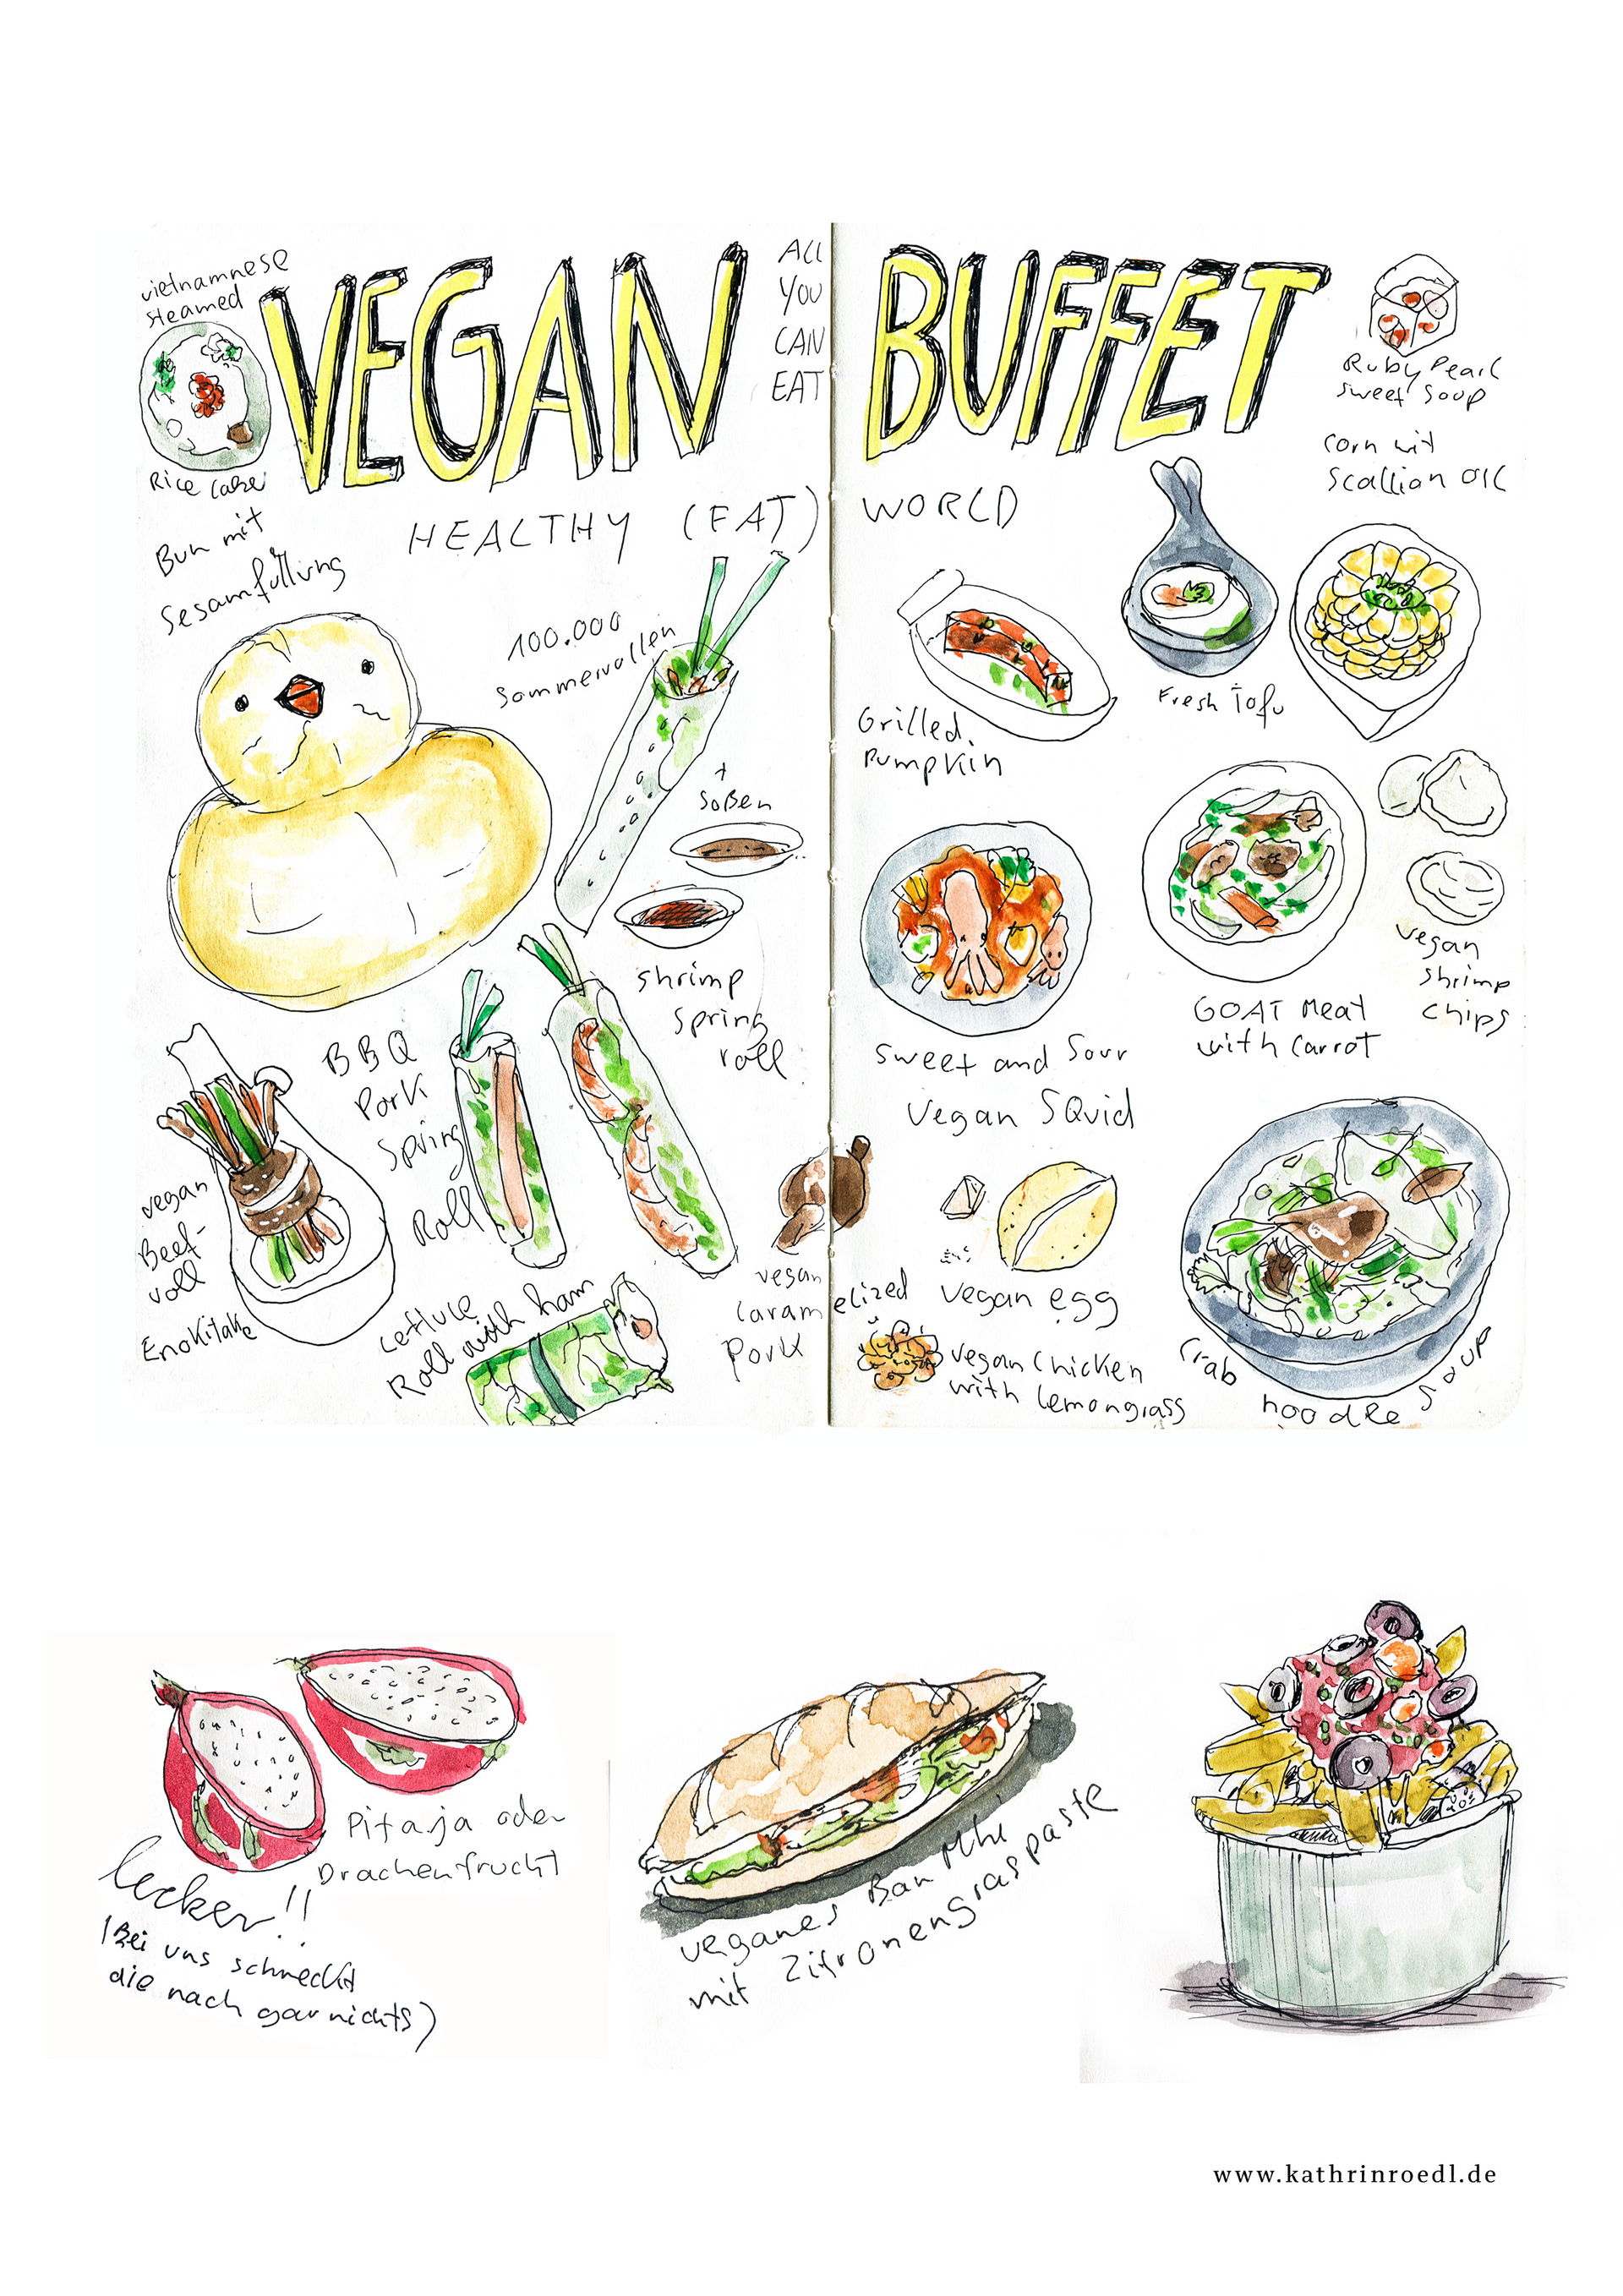 vietnamnese
steamed
Rice Cake
VEGAN
ALL
YOU
CAN
EAT
BUFFET
Ruby Pearl
sweet Soup
HEALTHY (EAT)
WORLD
Bun mit
Sesamfüllung
100.000
Sommerrollen
+
Soßen
shrimp
spring
roll
BBQ
Pork
Spring
Roll
vegan
Beef-
roll
Enokitake
Lettuce
Roll with ham
vegan
caramelized
Pork
corn wit
Scallian OIL
Fresh Tofu
Grilled
Pumpkin
Sweet and Sour
Vegan SQuid
GOAT Meat
with Carrot
vegan
shrimp
chips
vegan egg
vegan Chicken
with Lemongrass
Crab noodle Soup
Pitaja oder
Drachenfrucht
lecker!!
(Bei uns schmeckt
die nach gar nichts)
veganes Ban Mhi
mit Zitronengraspaste
www.kathrinroedl.de